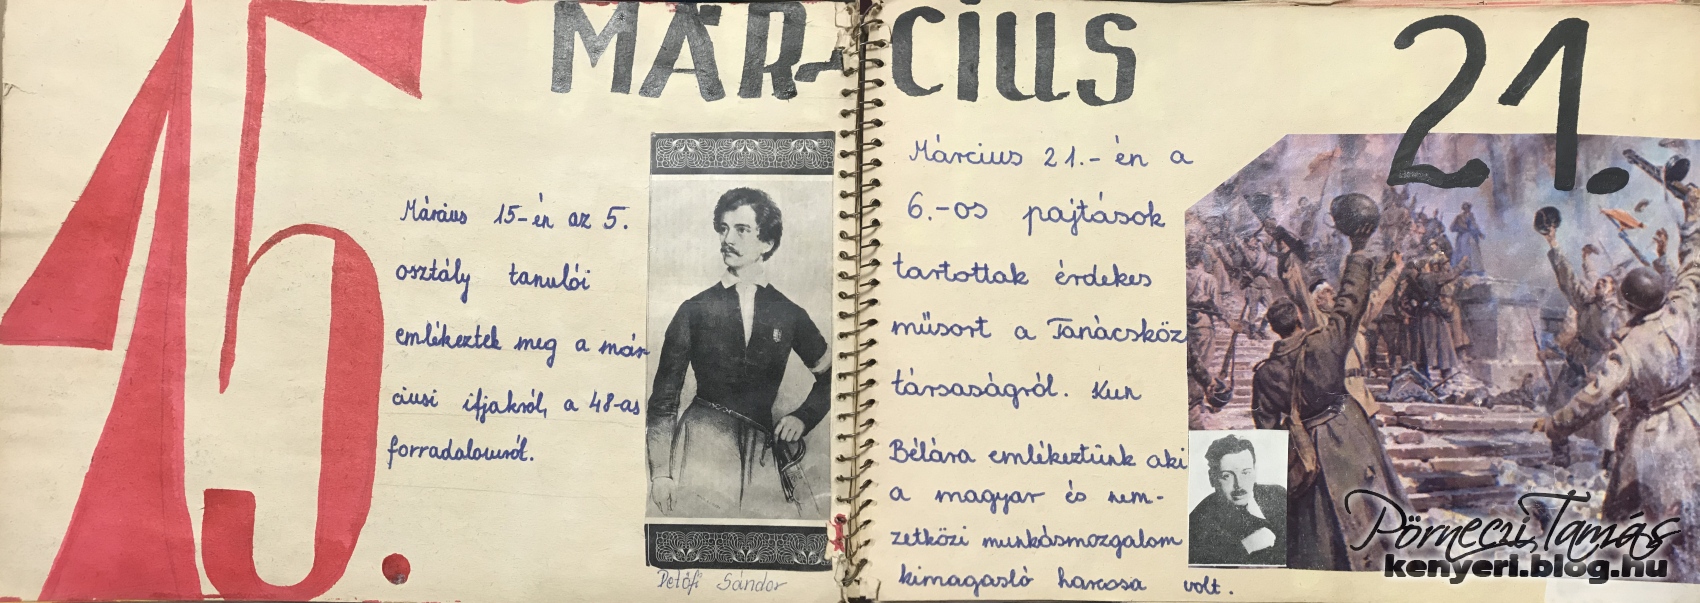 MÁRCIUS
15.
Március 15-én az 5.
osztály tanulói
emlékeztek meg a már
ciusi ifjakról, a 48-as
forradalomról.
Petőfi Sándor
21.
Március 21.-én a
6.-os pajtások
tartottak érdekes
műsort a Tanácsköz
társaságról. Kun
Bélára emlékeztünk aki
a magyar és nem-
zetközi munkásmozgalom
kimagasló harcosa volt.
Pörneczi Tamás
kenyeri.blog.hu